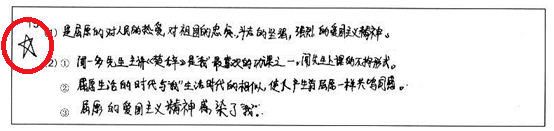 (1) 是屈原的对人民的热爱，对祖国的忠贞，斗志的坚强，强烈的爱国主义精神。
(2) ① 闻一多先生主讲《楚辞》是我"最喜欢的功课之一，闻先生上课的不拘形式。
② 屈原生活的时代与我"生活时代的相似，使人产生与屈原一样共鸣同感。
③ 屈原的爱国主义精神感染了我"。